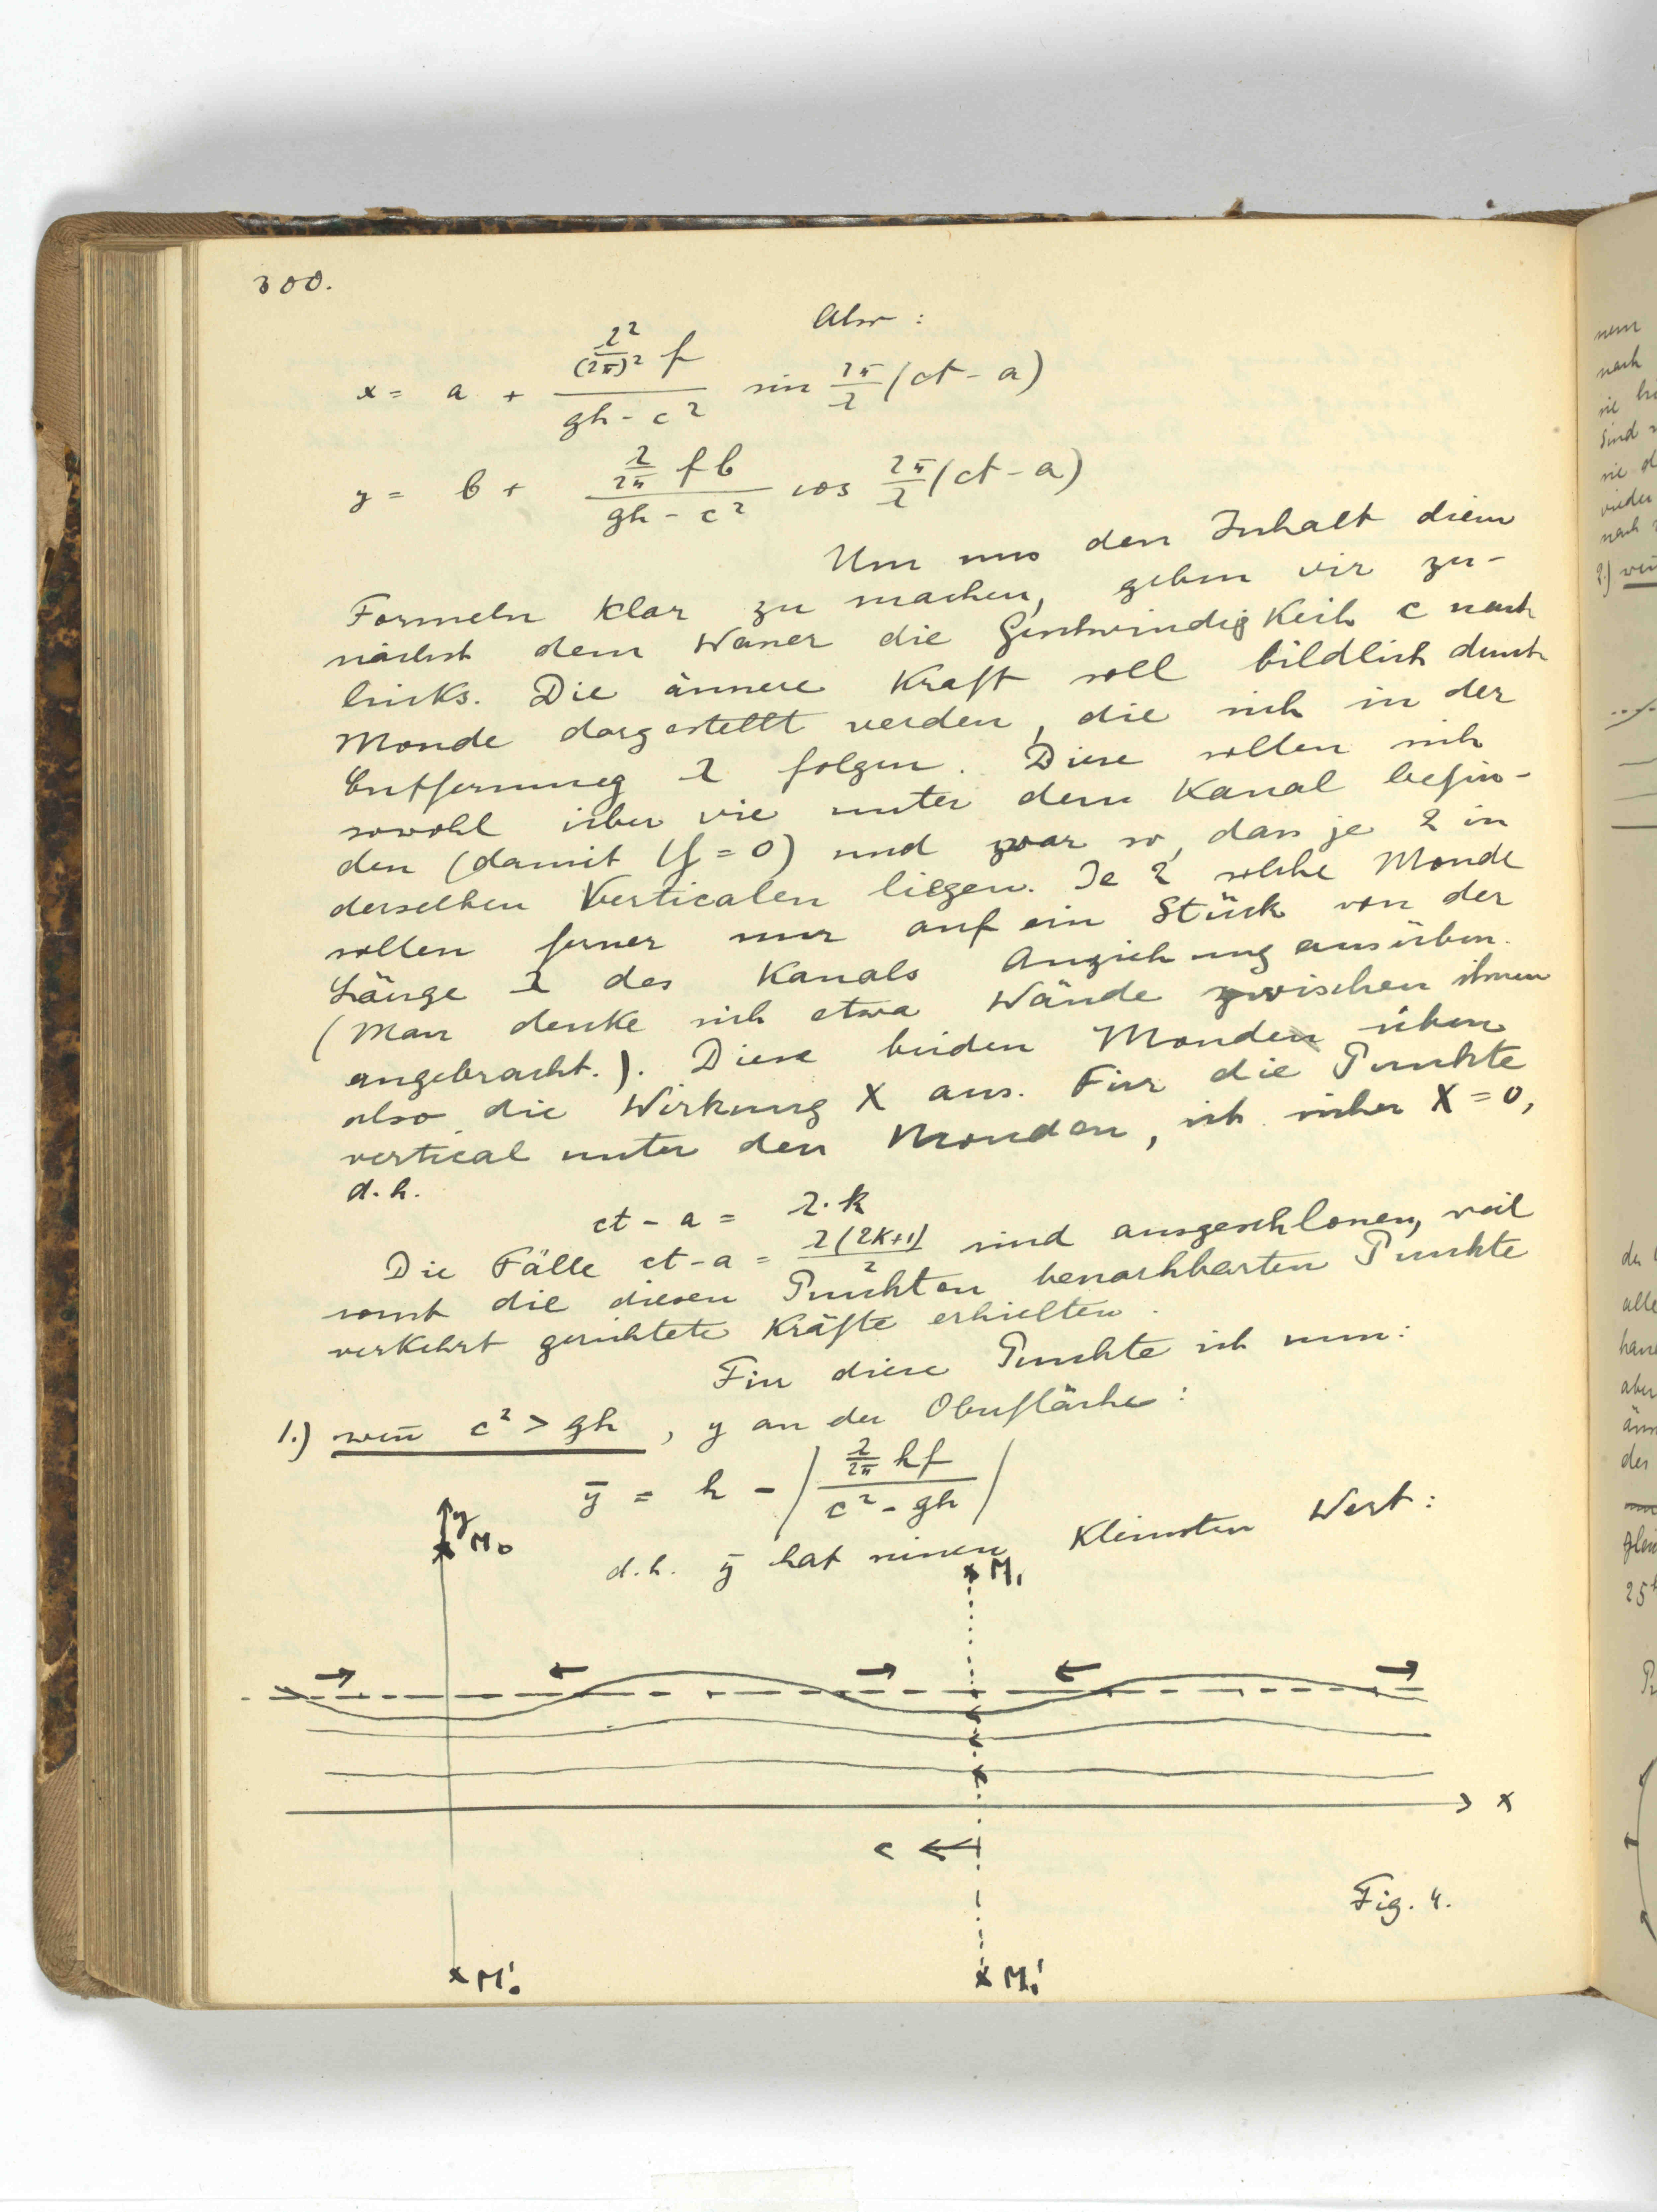 300.
Also :
x = a + \frac{\frac{λ^2}{(2π)^2} f}{gh - c^2} sin \frac{2π}{λ} (ct - a)
y = b + \frac{\frac{λ}{2π} f b}{gh - c^2} cos \frac{2π}{λ} (ct - a)
Um uns den Inhalt dieser
Formeln klar zu machen, geben wir zu-
nächst dem Wasser die Geschwindigkeit c nach
links. Die äussere Kraft soll bildlich durch
Monde dargestellt werden, die sich in der
Entfernung λ folgen. Diese sollen sich
sowohl über wie unter dem Kanal befin-
den (damit Y = 0) und zwar so, dass je 2 in
derselben Verticalen liegen. Je 2 solche Monde
sollen ferner nur auf ein Stück von der
Länge λ des Kanals Anziehung ausüben.
(Man denke sich etwa Wände zwischen ihnen
angebracht.). Diese beiden Monde üben
also die Wirkung X aus. Für die Punkte
vertical unter den Monden, ist sicher X = 0,
d.h.
ct - a = λ·k
Die Fälle ct - a = \frac{λ(2k+1)}{2} sind ausgeschlossen, weil
sonst die diesen Punkten benachbarten Punkte
verkehrt gerichtete Kräfte erhielten.
Für diese Punkte ist nun:
1.) weñ c² > gh, y an der Oberfläche:
ȳ = h - | \frac{\frac{λ}{2π} h f}{c^2 - gh} |
d.h. ȳ hat seinen kleinsten Wert:
y
M₀
M₁
x
c
Fig. 4.
M₀'
M₁'